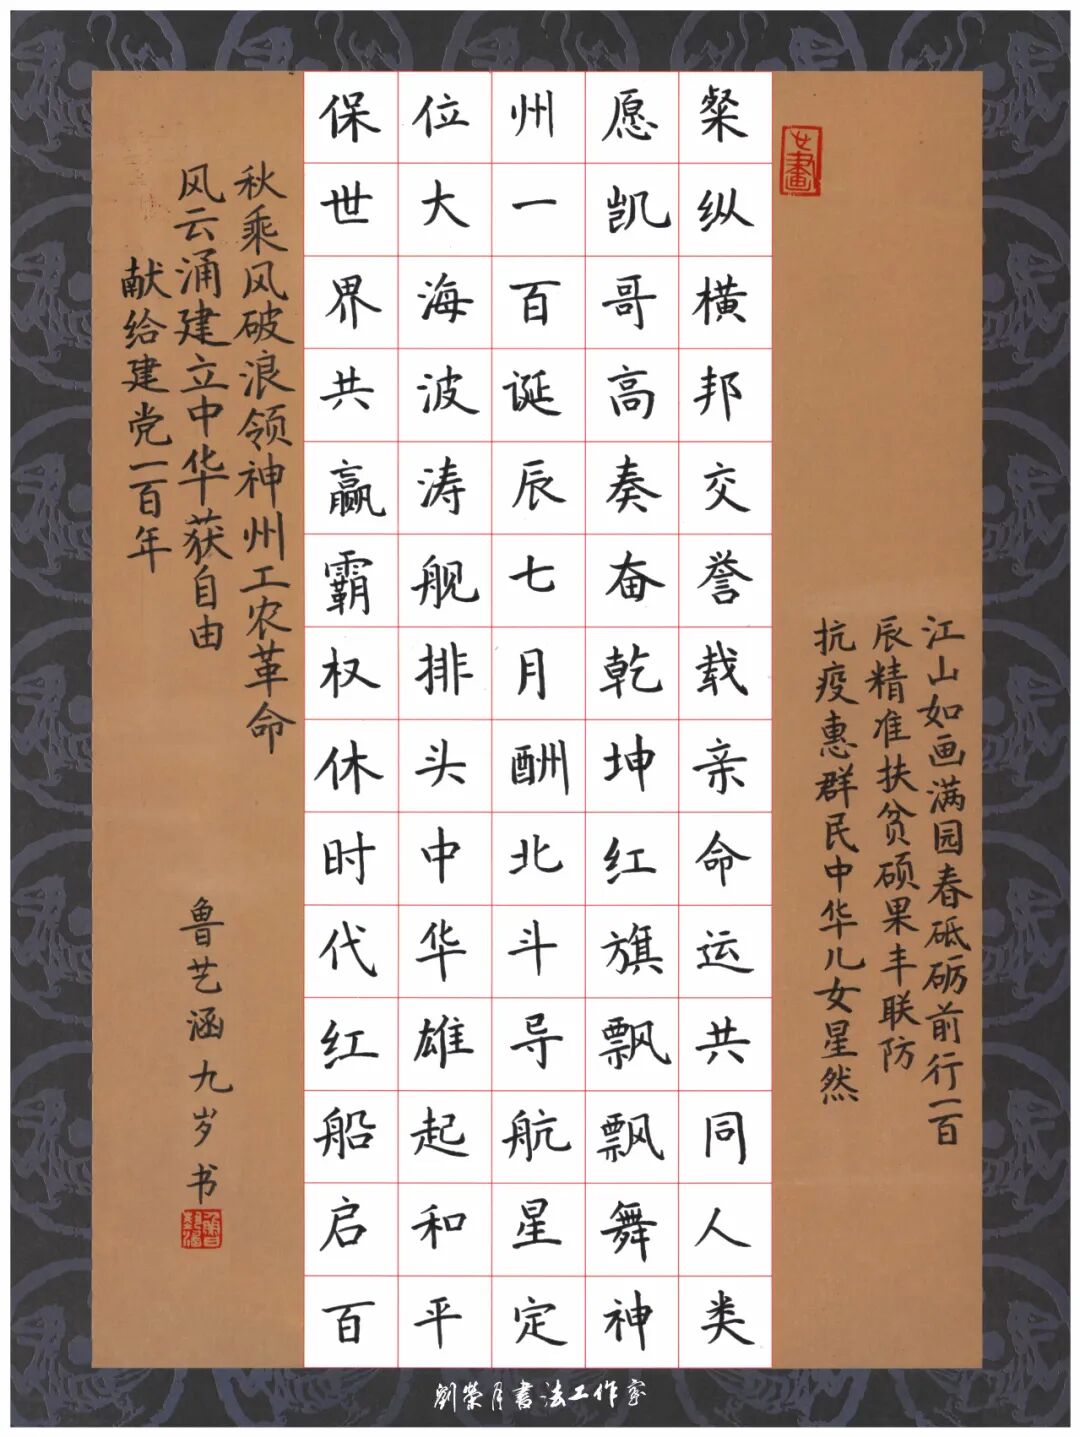 江山如画满园春砥砺前行一百
辰精准扶贫硕果丰联防
抗疫惠群民中华儿女星然
粲纵横邦交誉载亲命运共同人类
愿凯哥高奏奋乾坤红旗飘飘舞神
州一百诞辰七月酬北斗导航星定
位大海波涛舰排头中华雄起和平
保世界共赢霸权休时代红船启百
秋乘风破浪领神州工农革命
风云涌建立中华获自由
献给建党一百年
鲁艺涵九岁书
劉榮月書法工作室